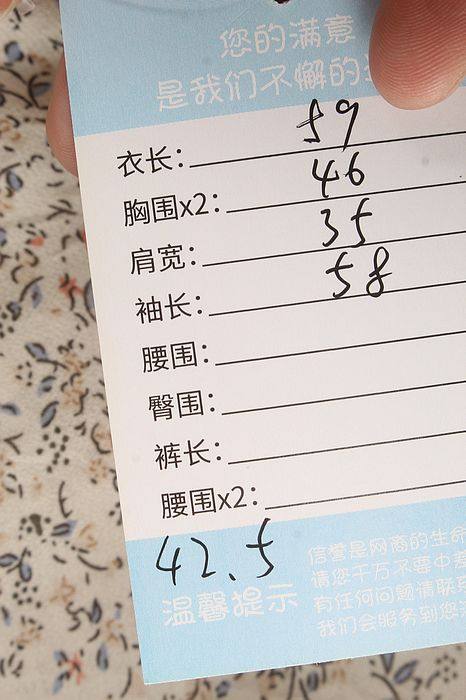 您的满意
是我们不懈的
衣长: 59
胸围x2: 46
肩宽: 35
袖长: 58
腰围:
臀围:
裤长:
腰围x2:
42.5
温馨提示
信誉是网商的生命
请您千万不要中差
有任何问题请联系
我们会服务到您